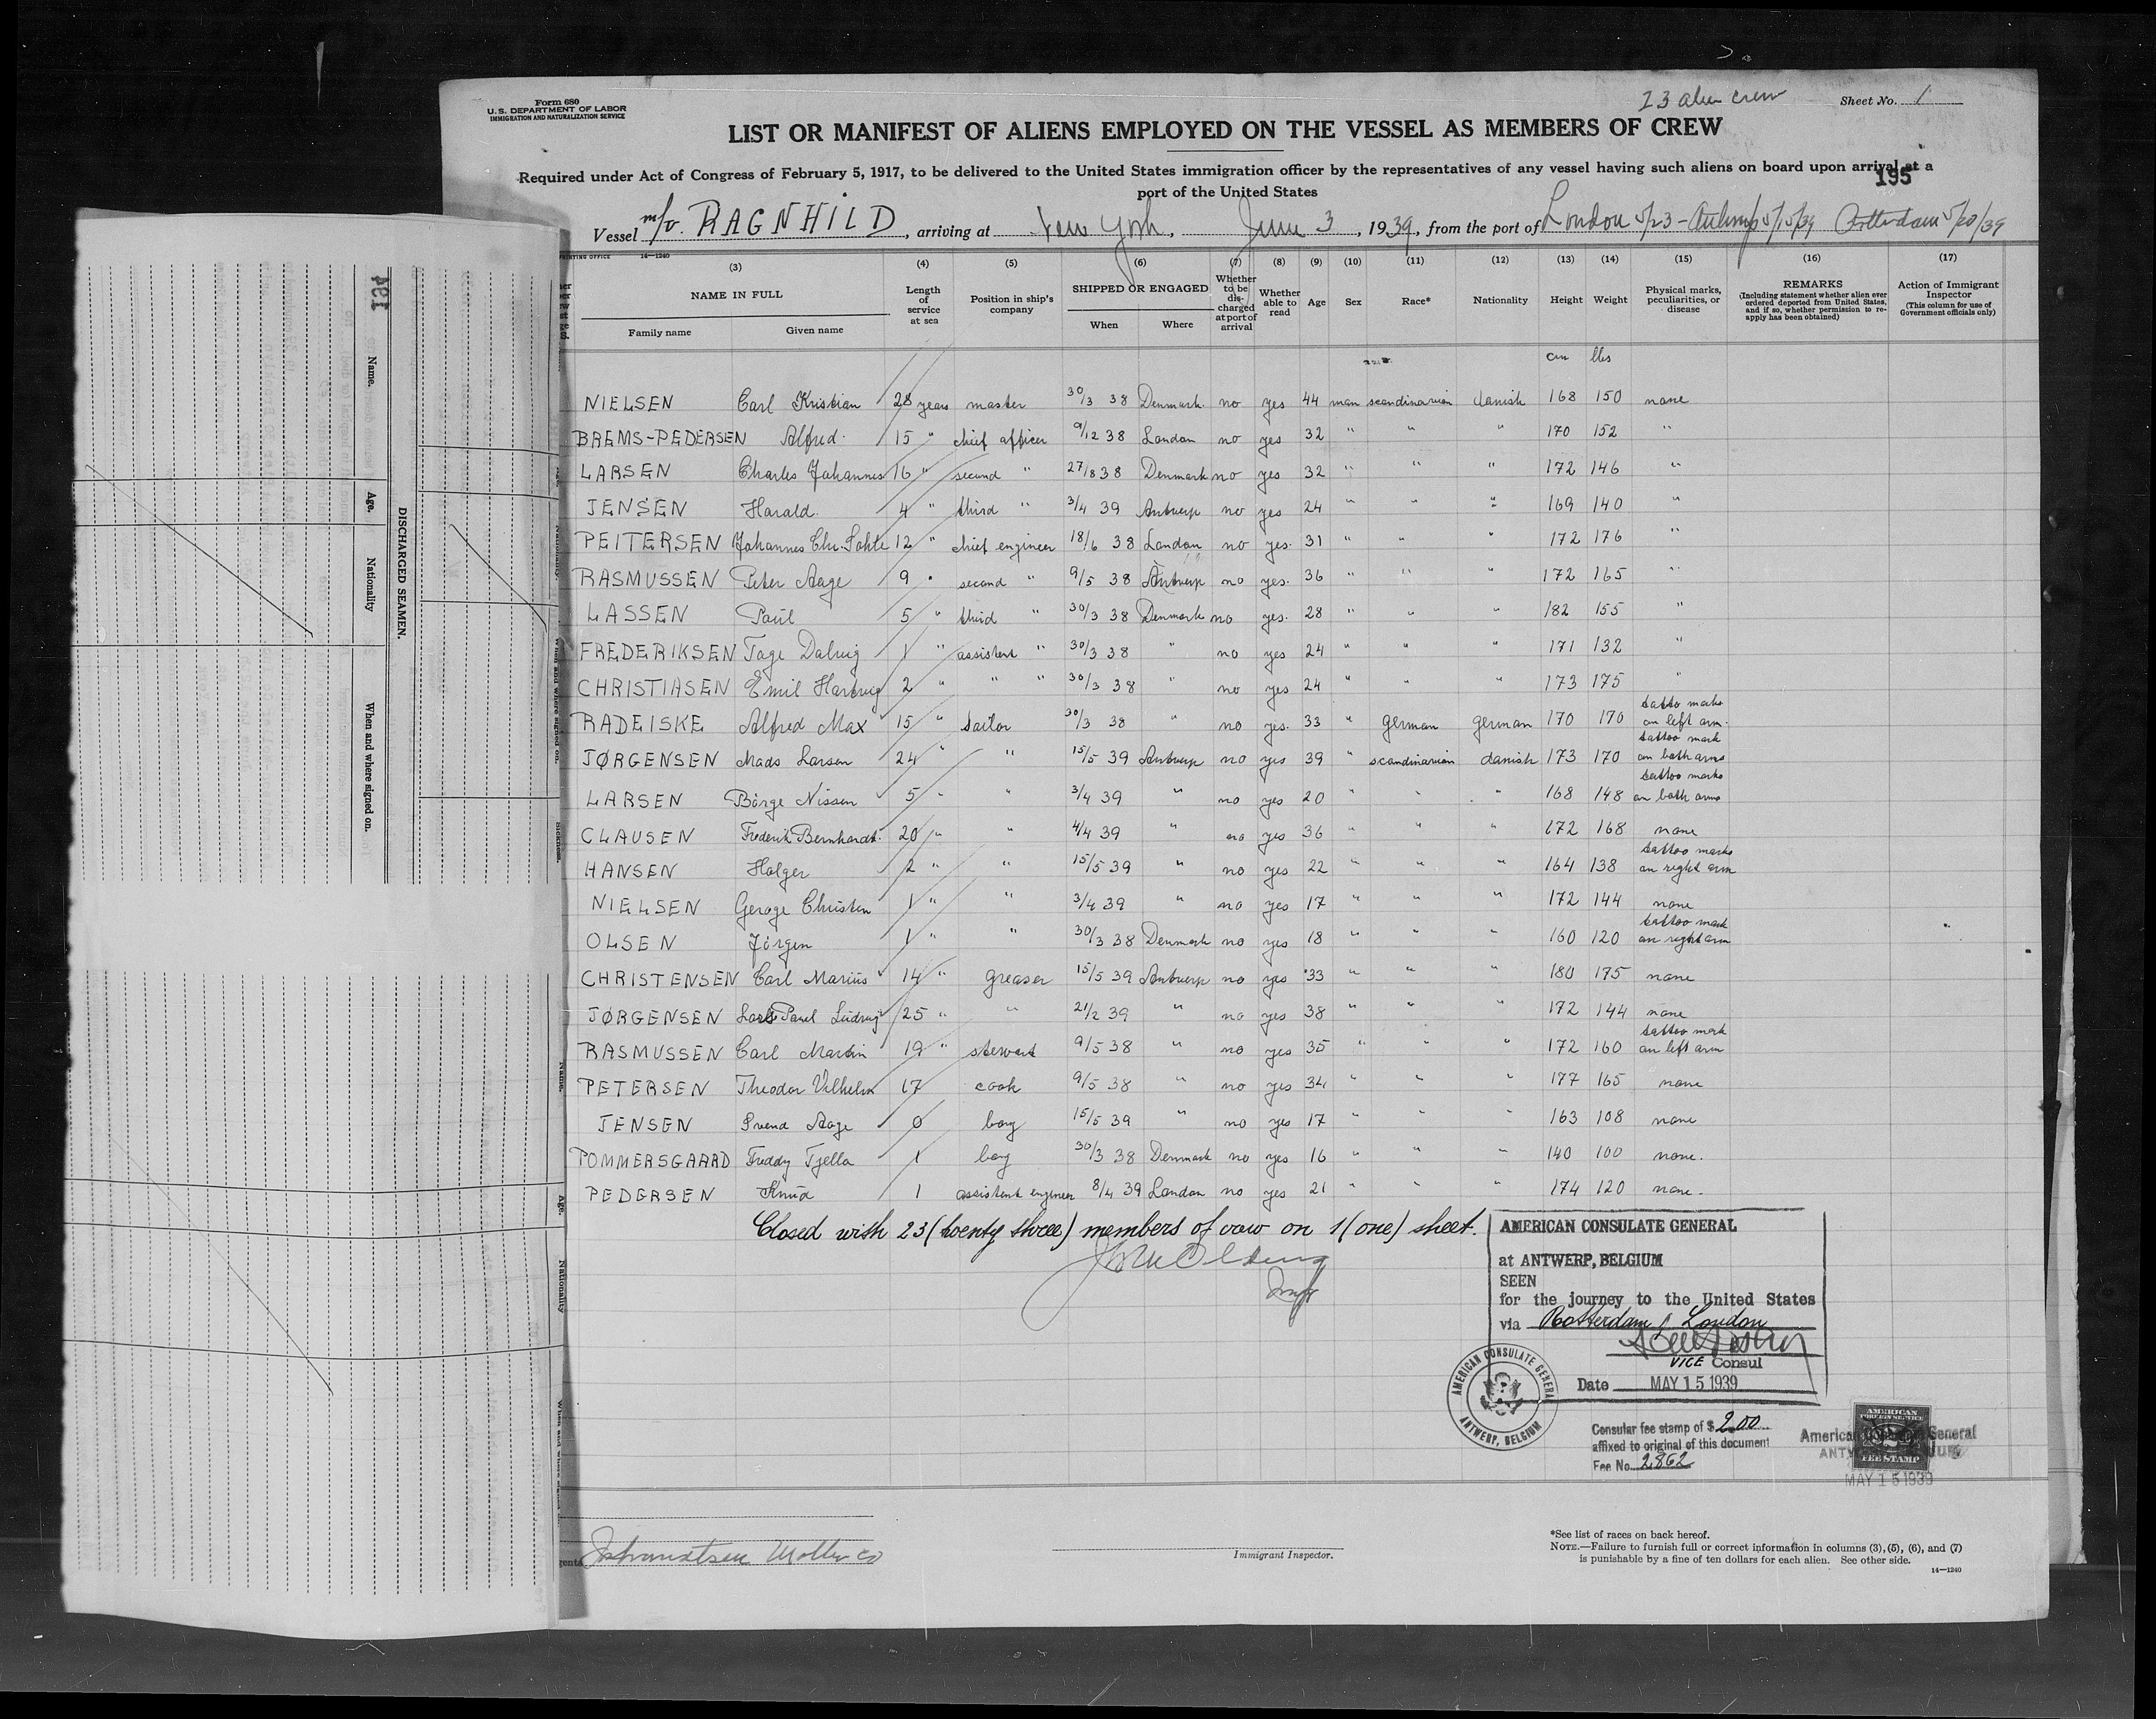 Form 680
U. S. DEPARTMENT OF LABOR
IMMIGRATION AND NATURALIZATION SERVICE
23 alien crew
Sheet No. 1
LIST OR MANIFEST OF ALIENS EMPLOYED ON THE VESSEL AS MEMBERS OF CREW
Required under Act of Congress of February 5, 1917, to be delivered to the United States immigration officer by the representatives of any vessel having such aliens on board upon arrival at a
port of the United States
195
Vessel m/v. RAGNHILD, arriving at New York, June 3, 1939, from the port of London 5/23 - Antwerp 5/15/39 Rotterdam 5/20/39
PRINTING OFFICE 14—1240
(3) (4) (5) (6) (7) (8) (9) (10) (11) (12) (13) (14) (15) (16) (17)
NAME IN FULL
Family name Given name
Length of service at sea
Position in ship's company
SHIPPED OR ENGAGED
When Where
Whether to be discharged at port of arrival
Whether able to read
Age
Sex
Race*
Nationality
Height
Weight
Physical marks, peculiarities, or disease
REMARKS
(Including statement whether alien ever ordered deported from United States, and if so, whether permission to reapply has been obtained)
Action of Immigrant Inspector
(This column for use of Government officials only)
cm lbs
NIELSEN Carl Kristian 28 years master 30/3 38 Denmark no yes 44 man scandinavian danish 168 150 none
BREMS-PEDERSEN Alfred. 15 " chief officer 9/12 38 London no yes 32 " " " 170 152 "
LARSEN Charles Johannes 16 " second " 27/8 38 Denmark no yes 32 " " " 172 146 "
JENSEN Harald. 4 " third " 3/4 39 Antwerp no yes 24 " " " 169 140 "
PEITERSEN Johannes Chr. 12 " chief engineer 18/6 38 London no yes. 31 " " " 172 176 "
RASMUSSEN Peter Aage 9 " second " 9/5 38 Antwerp no yes. 36 " " " 172 165 "
LASSEN Paul 5 " third " 30/3 38 Denmark no yes. 28 " " " 182 155 "
FREDERIKSEN Tage Dalvig 1 " assistent " 30/3 38 " no yes 24 " " " 171 132 "
CHRISTIASEN Emil Hartvig 2 " " " 30/3 38 " no yes 24 " " " 173 175 "
RADEISKE Alfred Max 15 " sailor 30/3 38 " no yes. 33 " german german 170 170 tatto marks on left arm.
JØRGENSEN Mads Larsen 24 " " 15/5 39 Antwerp no yes 39 " scandinavian danish 173 170 tattoo mark on both arms
LARSEN Börge Nissen 5 " " 3/4 39 " no yes 20 " " " 168 148 tattoo marks on both arms
CLAUSEN Frederik Bernhardt. 20 " " 4/4 39 " no yes 36 " " " 172 168 none
HANSEN Holger 2 " " 15/5 39 " no yes 22 " " " 164 138 tattoo marks on right arm
NIELSEN Geroge Christen 1 " " 3/4 39 " no yes 17 " " " 172 144 none
OLSEN Jörgen 1 " " 30/3 38 Denmark no yes 18 " " " 160 120 tattoo mark on right arm
CHRISTENSEN Carl Marius 14 " greaser 15/5 39 Antwerp no yes 33 " " " 180 175 none
JØRGENSEN Paul Ludvig 25 " " 21/2 39 " no yes 38 " " " 172 144 none
RASMUSSEN Carl Martin 19 " stewart 9/5 38 " no yes 35 " " " 172 160 tattoo mark on left arm
PETERSEN Theodor Vilhelm 17 cook 9/5 38 " no yes 34 " " " 177 165 none
JENSEN Svend Aage 0 boy 15/5 39 " no yes 17 " " " 163 108 none
POMMERSGAARD Freddy Tjella 1 boy 30/3 38 Denmark no yes 16 " " " 140 100 none.
PEDERSEN Knud 1 assistent engineer 8/4 39 London no yes 21 " " " 174 120 none.
Closed with 23 (twenty three) members of crew on 1 (one) sheet.
AMERICAN CONSULATE GENERAL
at ANTWERP, BELGIUM
SEEN
for the journey to the United States
via Rotterdam / London
VICE Consul
Date MAY 15 1939
AMERICAN CONSULATE GENERAL
ANTWERP, BELGIUM
Consular fee stamp of $ 2.00
affixed to original of this document
Fee No. 2862
AMERICAN
FOREIGN SERVICE
FEE STAMP
American Consulate General
MAY 15 1939
Immigrant Inspector.
*See list of races on back hereof.
NOTE.—Failure to furnish full or correct information in columns (3), (5), (6), and (7)
is punishable by a fine of ten dollars for each alien. See other side.
14—1240
194
DISCHARGED SEAMEN.
Name.
Age.
Nationality
When and where signed on.
Name.
Age.
Nationality